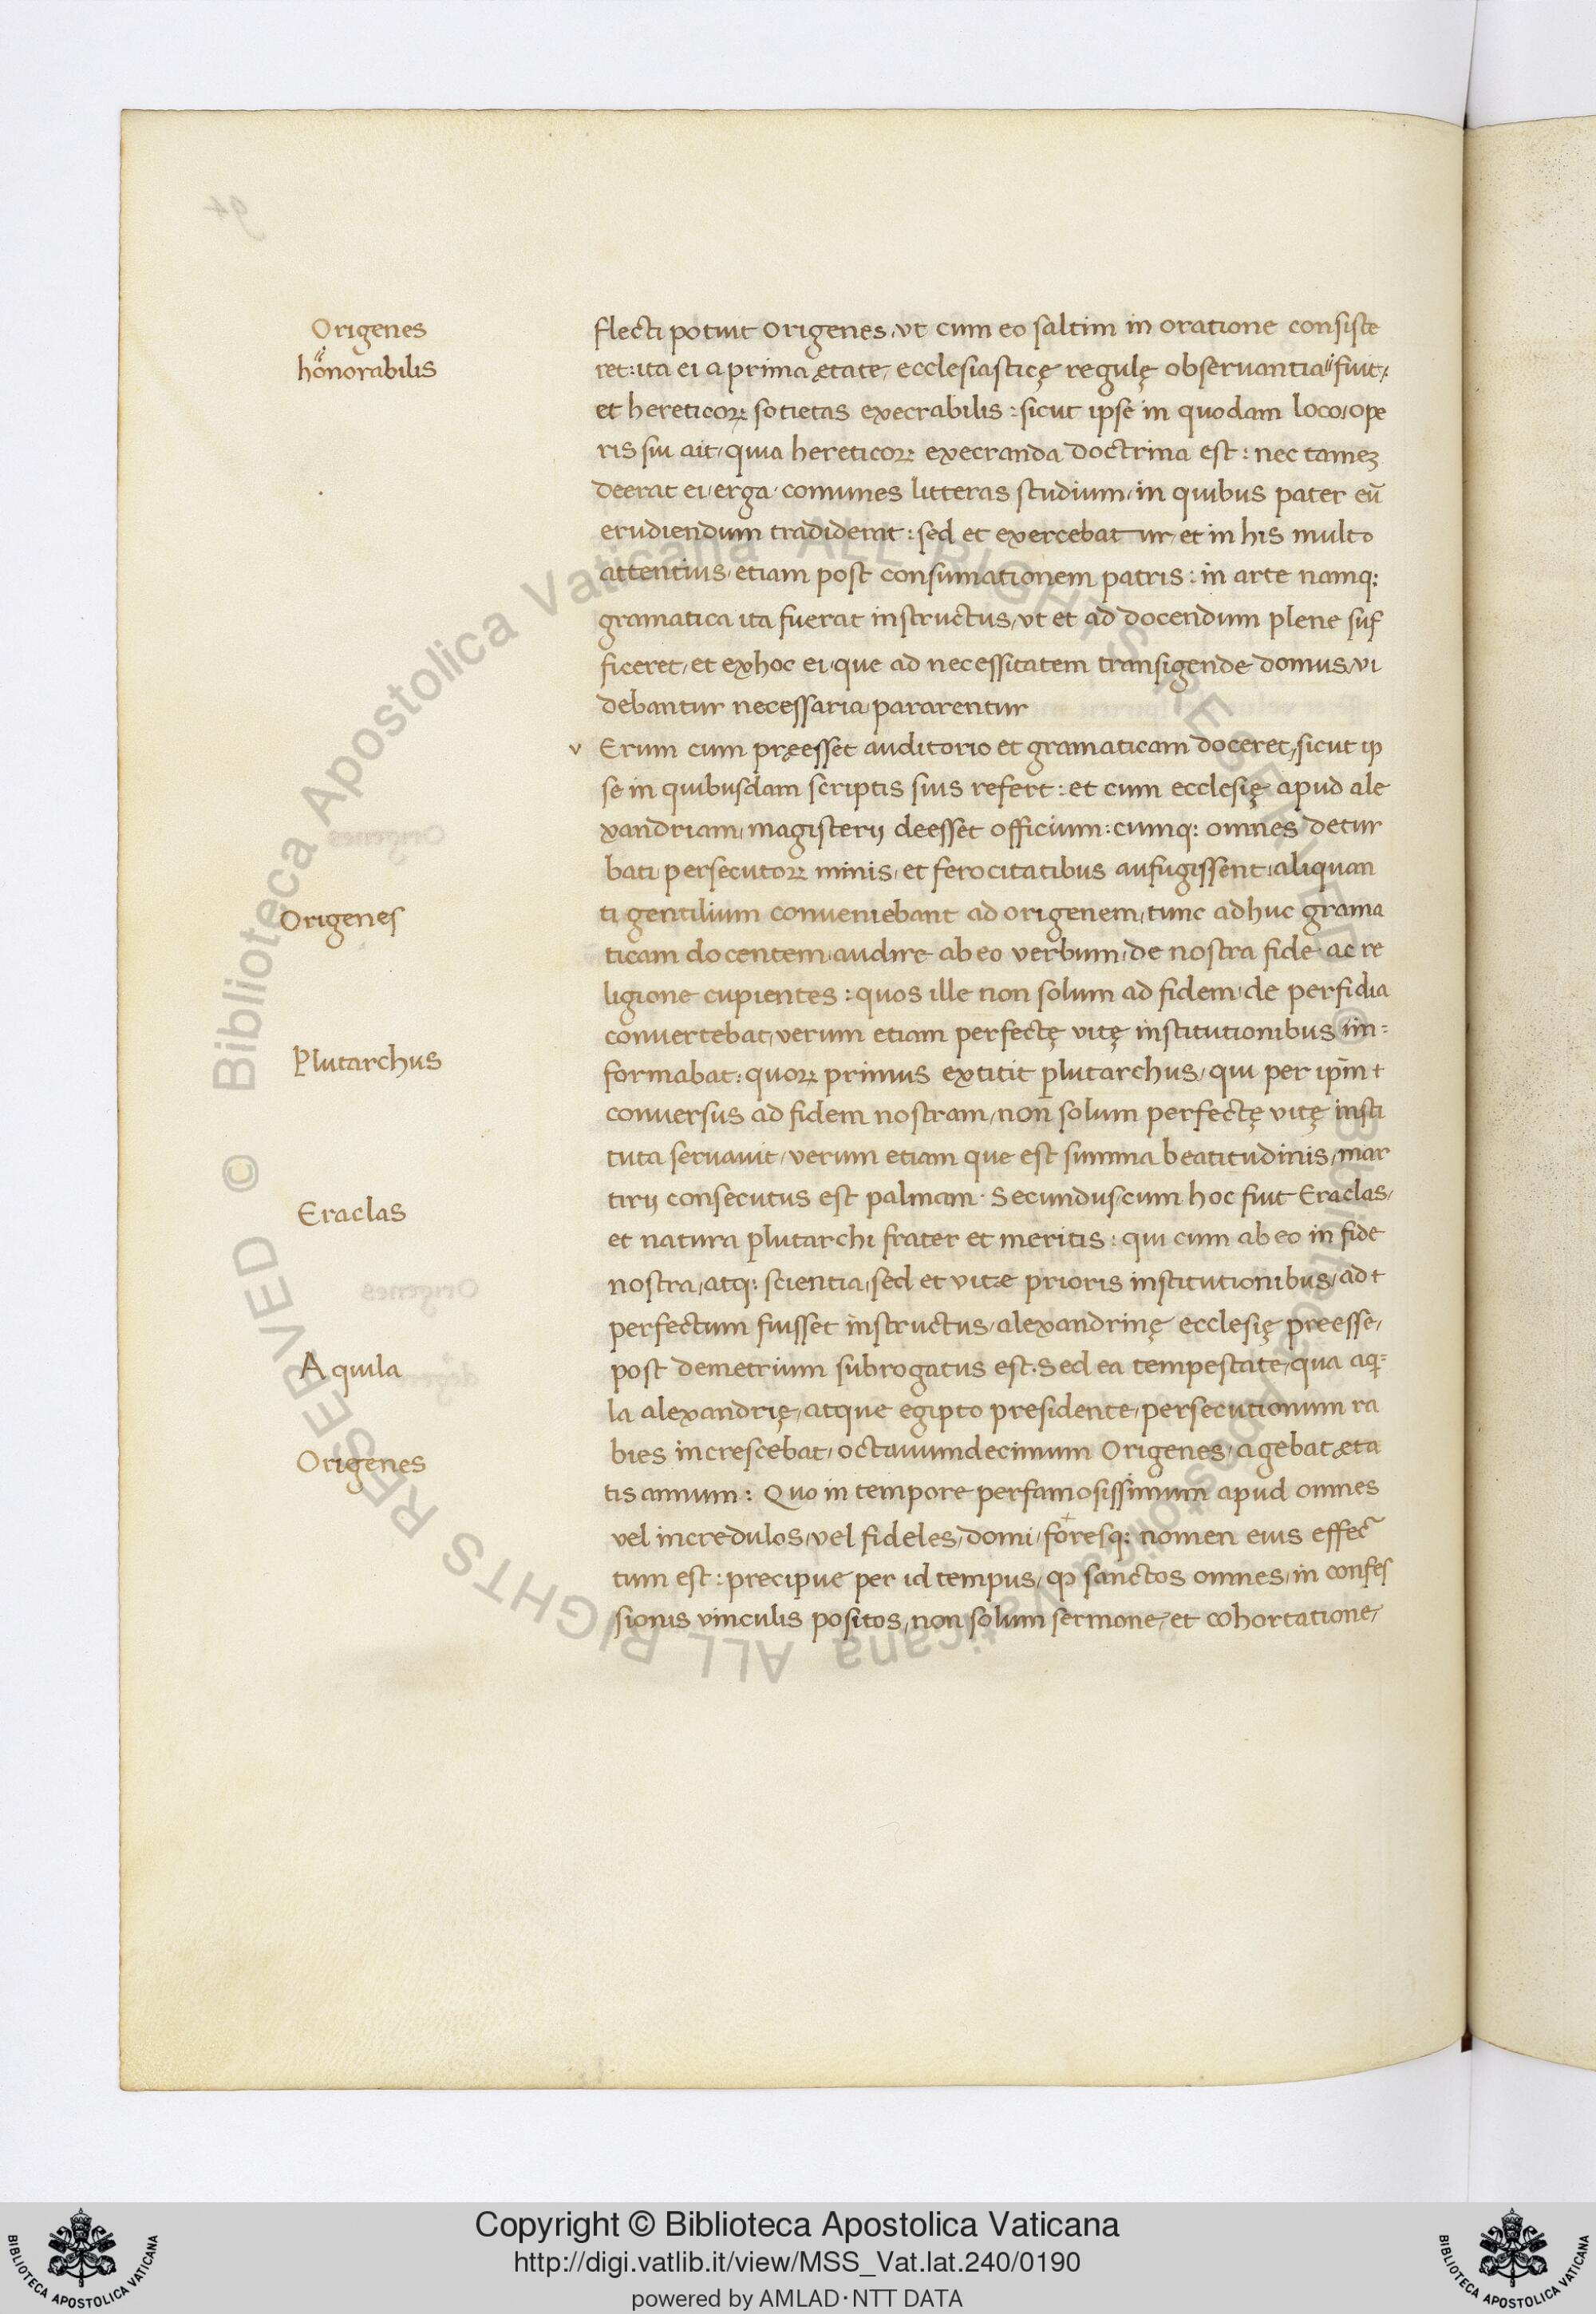 Origenes
honorabilis
flecti potuit origenes, ut cum eo saltim in oratione consiste
ret: ita ei a prima ętate, ecclesiasticę regulę observantia fuit,
et hereticoꝝ sotietas execrabilis: sicut ipse in quodam loco, ope
ris sui ait, quia hereticoꝝ execranda doctrina est: nec tameꝫ
deerat ei, erga comunes litteras studium, in quibus pater eū
erudiendum tradiderat: sed et exercebatur, et in his multo
attentius, etiam post consumationem patris: in arte namq:
gramatica ita fuerat instructus, ut et ad docendum plene suf
ficeret, et exhoc ei, que ad necessitatem transigende domus, vi
debantur necessaria, pararentur
v Erum cum pręesset auditorio et gramaticam doceret, sicut ip
se in quibusdam scriptis suis refert: et cum ecclesię apud ale
xandriam, magisterij deesset officium: cumq: omnes detur
bati, persecutoꝝ minis, et ferocitatibus aufugissent, aliquan
Origenes
ti gentilium conveniebant ad origenem, tunc adhuc grama
ticam docentem, audire ab eo verbum, de nostra fide ac re
ligione cupientes: quos ille non solum ad fidem, de perfidia
convertebat, verum etiam perfectę vitę institutionibus im-
Plutarchus
formabat: quoꝝ primus extitit plutarchus, qui per ip̄m
conversus ad fidem nostram, non solum perfectę vitę insti
tuta servavit, verum etiam que est summa beatitudinis, mar
tirij consecutus est palmam. Secundus, cum hoc fuit Eraclas,
Eraclas
et natura plutarchi frater et meritis: qui cum ab eo in fide
nostra, atq: scientia, sed et vitae prioris institutionibus, ad
perfectum fuisset instructus, alexandrinę ecclesię preesse,
Aquila
post demetrium subrogatus est. Sed ea tempestate, qua aq̄-
la alexandrię, atque egipto presidente, persecutionum ra
bies increscebat, octavumdecimum Origenes, agebat ęta
Origenes
tis annum: Quo in tempore perfamosissimum apud omnes
vel incredulos, vel fideles, domi, foresq: nomen eius effec
tum est: precipue per id tempus, qꝫ sanctos omnes, in confes
sionis vinculis positos, non solum sermone, et cohortatione,
Copyright © Biblioteca Apostolica Vaticana
http://digi.vatlib.it/view/MSS_Vat.lat.240/0190
powered by AMLAD·NTT DATA
BIBLIOTECA APOSTOLICA VATICANA
BIBLIOTECA APOSTOLICA VATICANA
© Biblioteca Apostolica Vaticana ALL RIGHTS RESERVED © Biblioteca Apostolica Vaticana ALL RIGHTS RESERVED